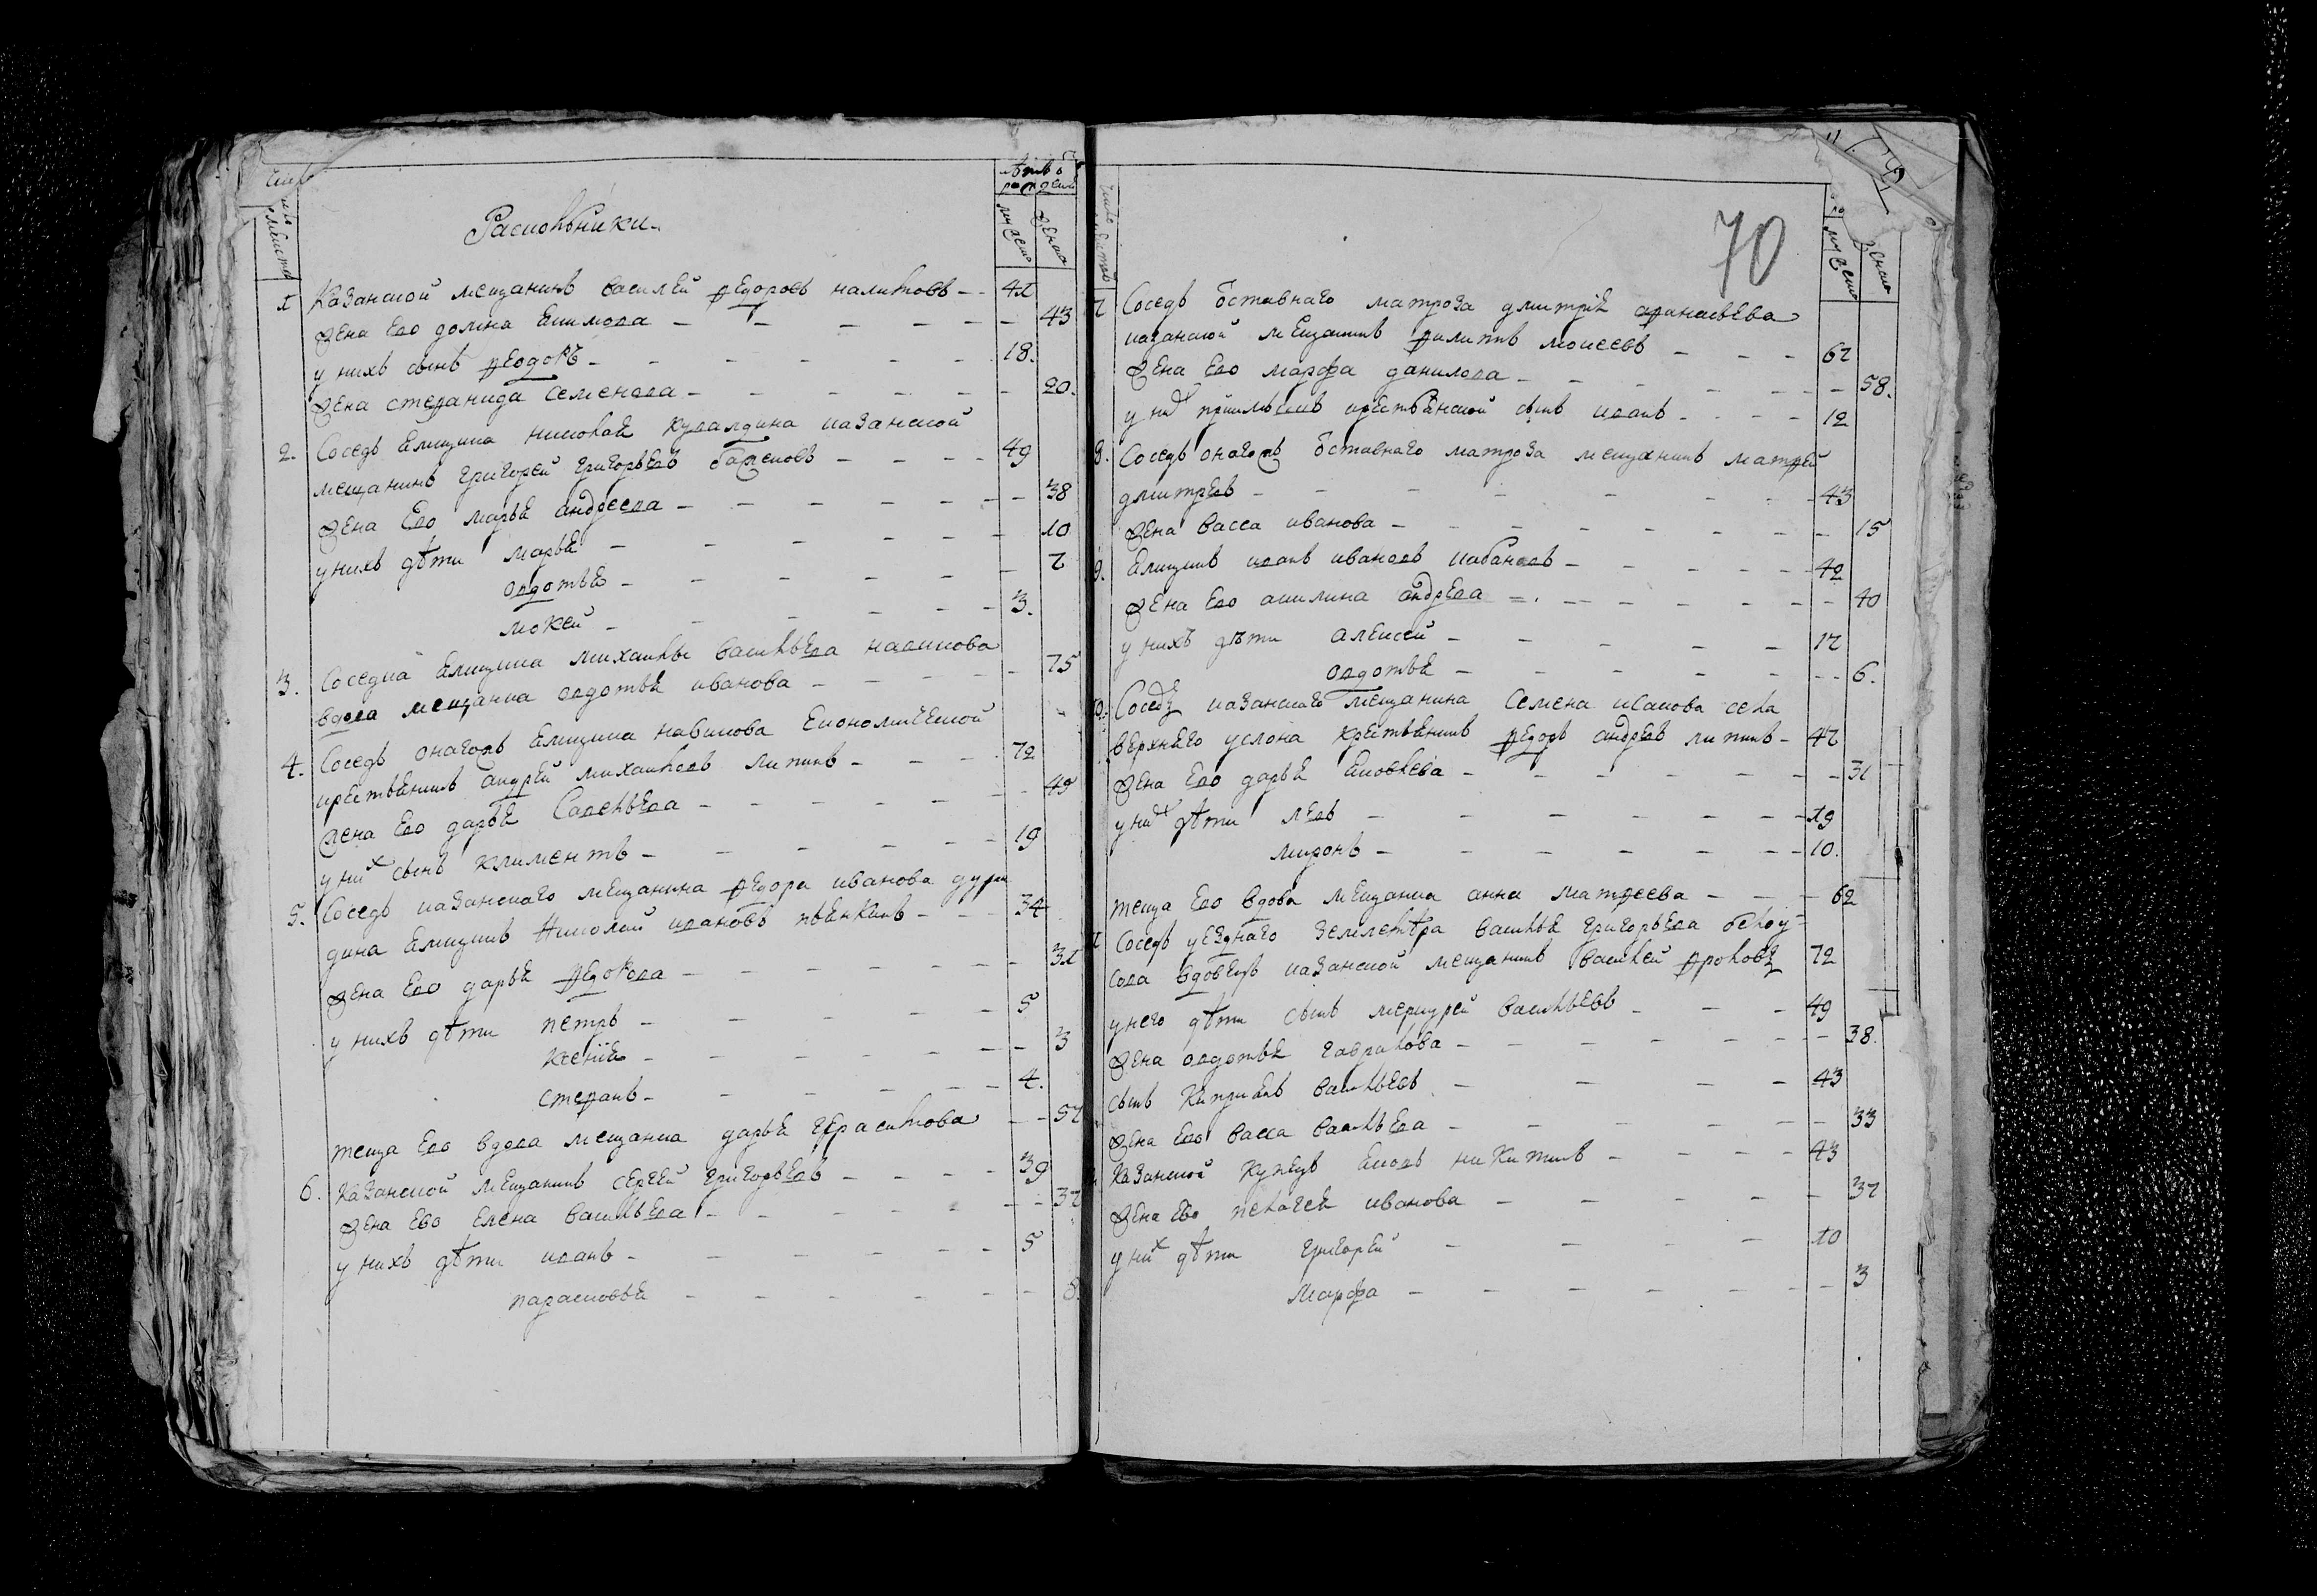 Раскольники
лѣта
рожден
мужеска
женска
1 Казанской мещанинъ Василей Федоровъ 41
Жена Ево домна Екимова 43
у нихъ сынъ Федоръ 18.
Жена стефанида Семенова 20.
2. Соседъ Ямщика казанской
мещанинъ Григорей Григорьевъ 49
Жена Ево Марья андреева 38
у нихъ дѣти Марья 10
овдотья 7
мокей 3.
3. Соседка Ямщика Михаилы Васильева
вдова мещанка овдотья иванова 75
4. Соседъ Ямщика Економической
крестьянинъ андрей михайловъ липинъ 72
жена Ево дарья Савельева 49
у них сынъ Климентъ 19
5. Соседъ казанскаго мещанина Федора иванова
дина Ямщикъ Николай ивановъ 34
Жена Ево дарья Федорова 31
у нихъ дѣти петръ 5
Ксенія 3
стефанъ 4.
теща Ево вдова мещанка дарья Герасимова 57
6. Казанской мещанинъ Сергей Григорьевъ 39
Жена Ево Елена Васильева 37
у нихъ дѣти иванъ 5
парасковья 8.
70
мужеска
женска
7 Соседъ отставнаго матроза дмитрія афанасьева
казанской мещанинъ филипъ моисеевъ 67
Жена Ево марфа данилова 58.
у них приимышъ крестьянской сынъ иванъ 12
8. Соседъ отставнаго матроза мещанинъ матфей
дмитревъ 43
Жена Васса иванова 15
9. Ямщикъ иванъ ивановъ кабановъ 42
Жена Ево акилина андрева 40
у нихъ дѣти алексей 17
овдотья 6.
10. Соседъ казанскаго мещанина Семена села
верхнего услона крестьянинъ Федоръ андревъ липинъ 47
Жена Ево дарья Яковлева 31
у них дѣти левъ 19
миронъ 10.
теща Ево вдова мещанка анна матфеева 62
Соседъ уезднаго землемѣра Василья Григорьева белоу=
сова вдовецъ казанской мещанинъ Василей фроловъ 72
у него дѣти сынъ меркурей Васильевъ 49
Жена овдотья гаврилова 38.
сынъ Киприянъ Васильевъ 43
Жена Ево Васса Васильева 33
Казанской купецъ Яковъ никитинъ 43
Жена Ево пелагея иванова 37
у них дѣти Григорей 10
Марфа 3